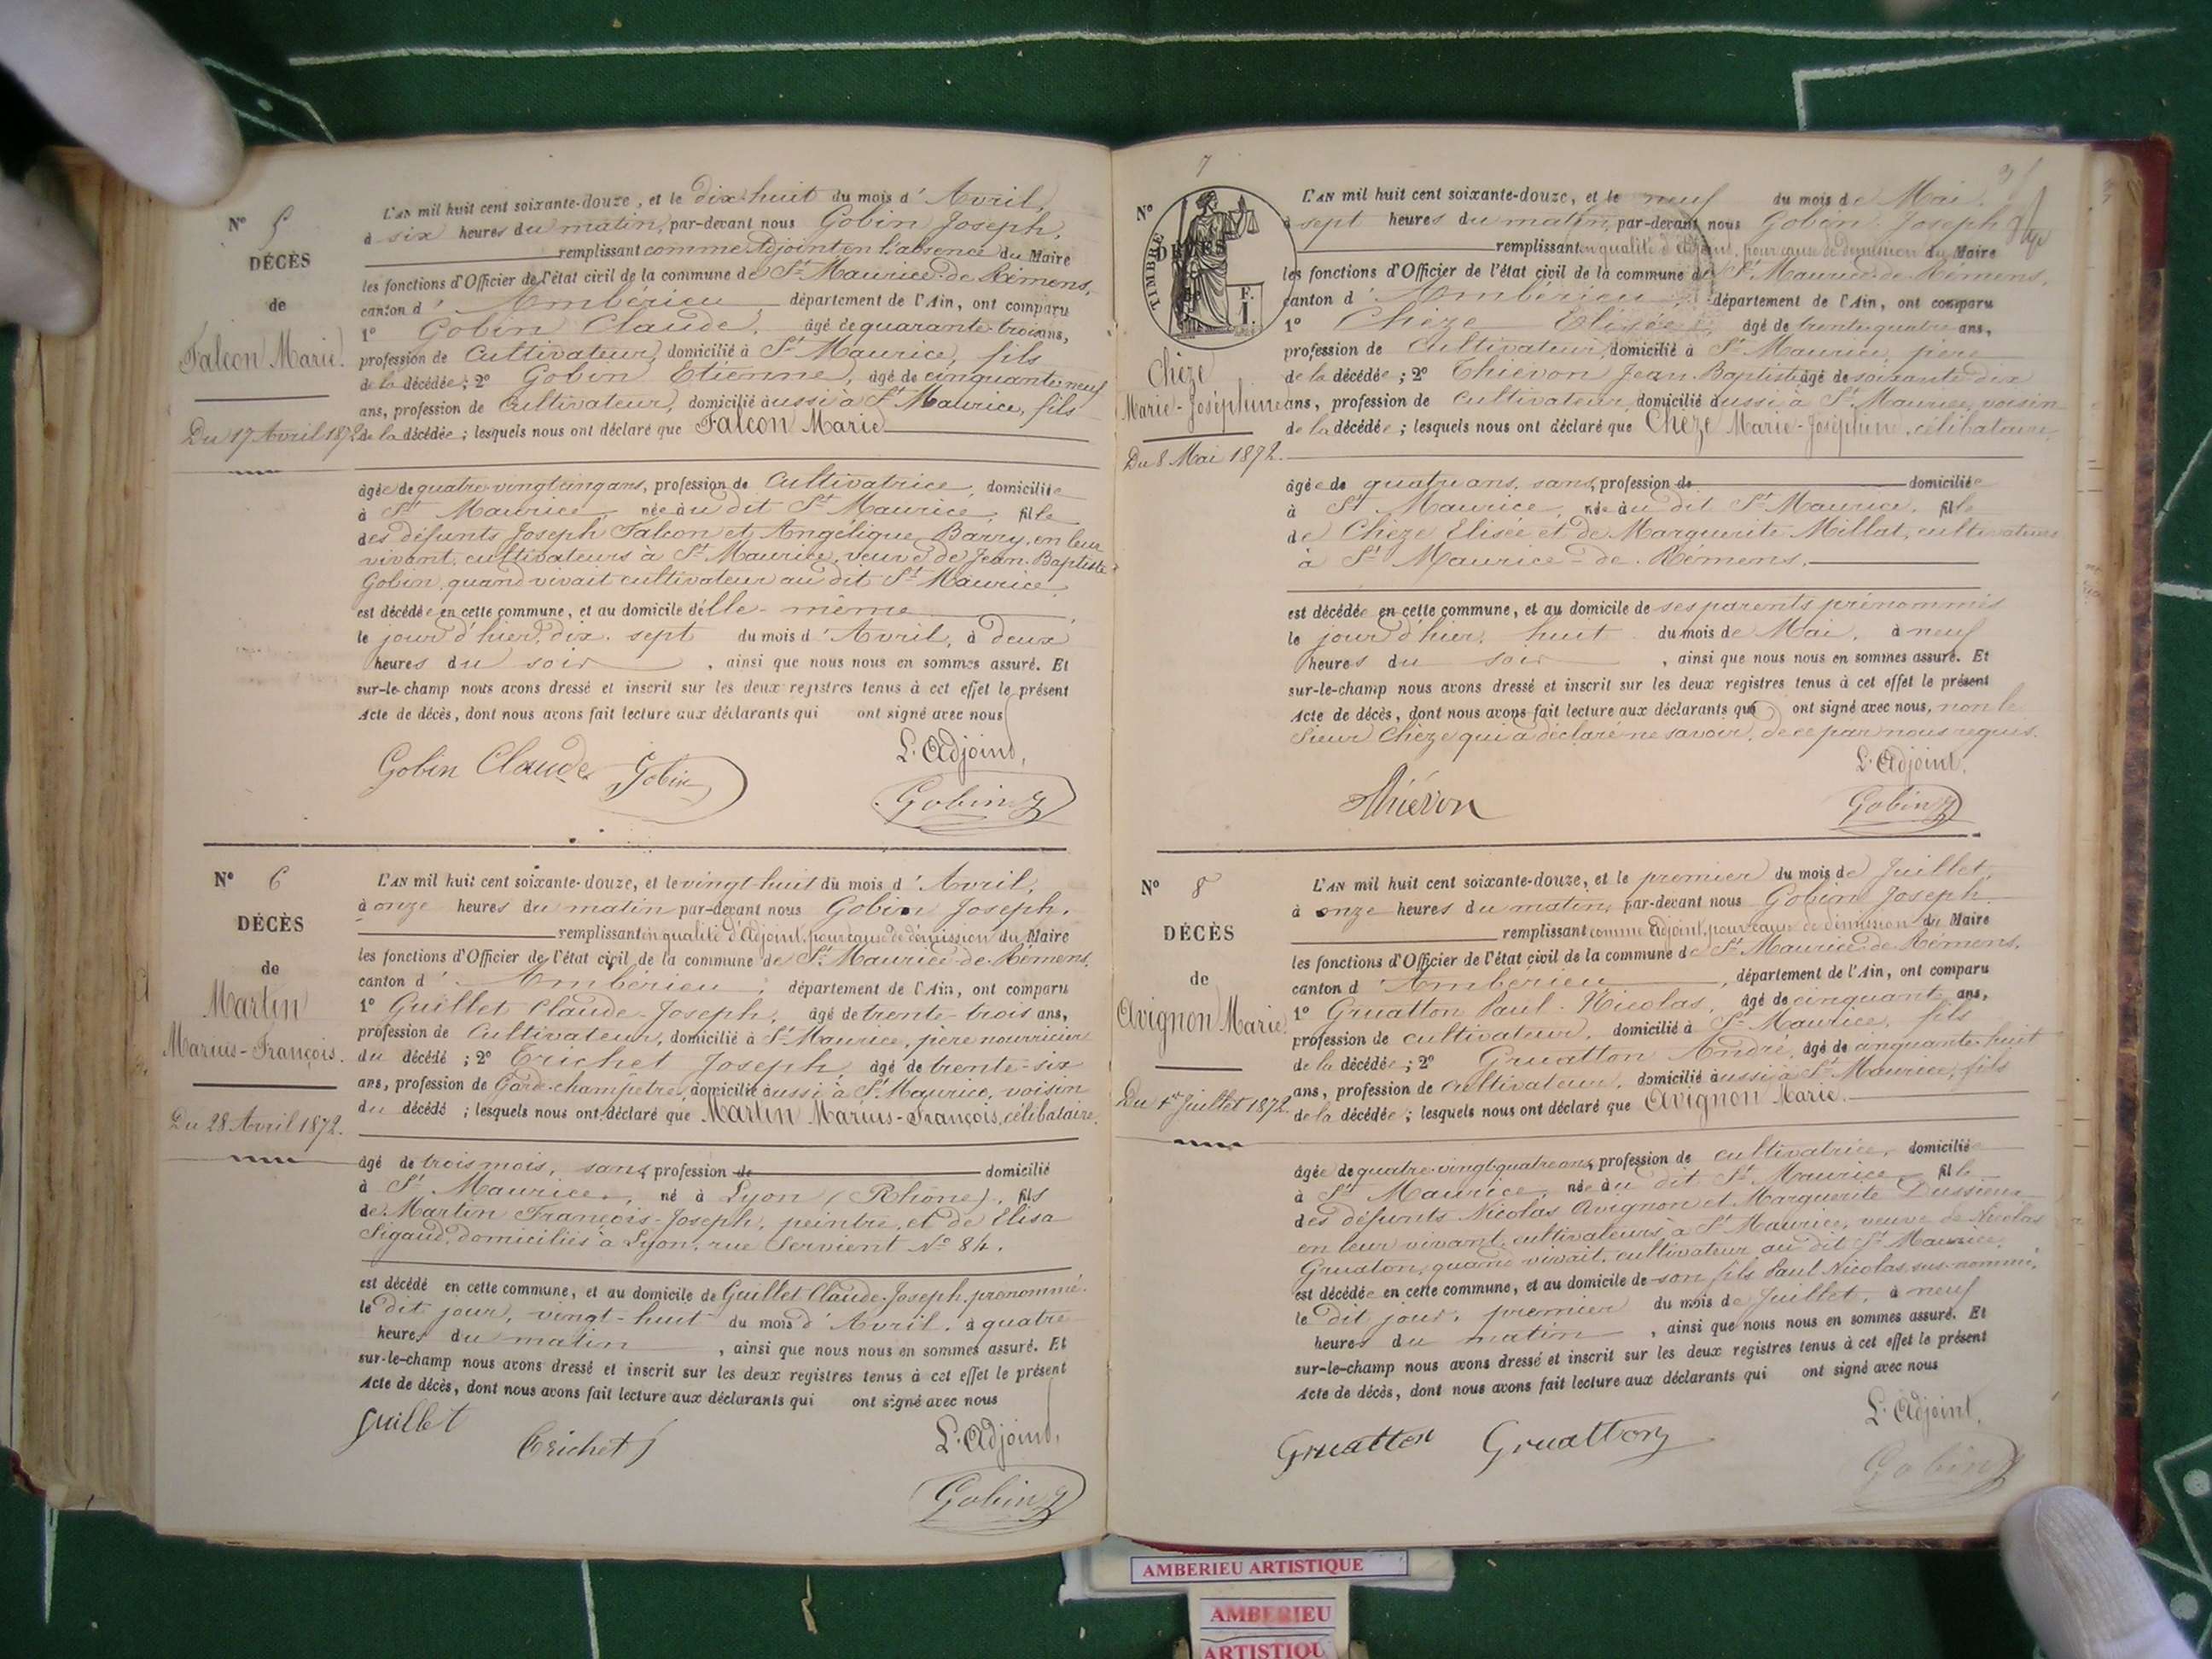 N° 5
DÉCÈS
de
Falcon Marie.
Du 17 Avril 1872.
L'AN mil huit cent soixante-douze, et le dix-huit du mois d'Avril,
à six heures du matin, par-devant nous Gobin Joseph,
remplissant comme Adjoint en l'absence du Maire
les fonctions d'Officier de l'état civil de la commune de St Maurice-de-Rémens,
canton d'Ambérieu, département de l'Ain, ont comparu
1° Gobin Claude, âgé de quarante-trois ans,
profession de Cultivateur, domicilié à St Maurice, fils
de la décédée; 2° Gobin Etienne, âgé de cinquante-neuf
ans, profession de Cultivateur, domicilié aussi à St Maurice, fils
de la décédée; lesquels nous ont déclaré que Falcon Marie
âgée de quatre-vingt-cinq ans, profession de Cultivatrice, domiciliée
à St Maurice, née au dit St Maurice, fille
des défunts Joseph Falcon et Angélique Barry, en leur
vivant, cultivateurs à St Maurice, veuve de Jean-Baptiste
Gobin, quand vivait cultivateur au dit St Maurice,
est décédée en cette commune, et au domicile d'elle-même
le jour d'hier, dix-sept du mois d'Avril, à deux
heures du soir, ainsi que nous nous en sommes assuré. Et
sur-le-champ nous avons dressé et inscrit sur les deux registres tenus à cet effet le présent
Acte de décès, dont nous avons fait lecture aux déclarants qui ont signé avec nous
L'Adjoint,
Gobin Claude Gobin Gobin
N° 6
DÉCÈS
de
Martin
Marius-François.
Du 28 Avril 1872.
L'AN mil huit cent soixante-douze, et le vingt-huit du mois d'Avril,
à onze heures du matin par-devant nous Gobin Joseph,
remplissant en qualité d'Adjoint, pour cause de démission du Maire
les fonctions d'Officier de l'état civil de la commune de St Maurice-de-Rémens,
canton d'Ambérieu, département de l'Ain, ont comparu
1° Guillet Claude-Joseph, âgé de trente-trois ans,
profession de Cultivateur, domicilié à St Maurice, père nourricier
du décédé; 2° Crichet Joseph, âgé de trente-six
ans, profession de Garde-champêtre, domicilié aussi à St Maurice, voisin
du décédé; lesquels nous ont déclaré que Martin Marius-François, célibataire,
âgé de trois mois, sans profession de domicilié
à St Maurice, né à Lyon (Rhône), fils
de Martin François-Joseph, peintre, et de Elisa
Sigaud, domiciliés à Lyon, rue Servient N° 84.
est décédé en cette commune, et au domicile de Guillet Claude-Joseph, prénommé.
le dit jour, vingt-huit du mois d'Avril, à quatre
heures du matin, ainsi que nous nous en sommes assuré. Et
sur-le-champ nous avons dressé et inscrit sur les deux registres tenus à cet effet le présent
Acte de décès, dont nous avons fait lecture aux déclarants qui ont signé avec nous
Guillet Crichet L'Adjoint,
Gobin
7
N°
DÉCÈS
de
TIMBRE
F.
1.
Chèze
Marie-Joséphine
Du 8 Mai 1872.
L'AN mil huit cent soixante-douze, et le neuf du mois de Mai,
à sept heures du matin, par-devant nous Gobin Joseph
remplissant en qualité d'Adjoint, pour cause de démission du Maire
les fonctions d'Officier de l'état civil de la commune de St Maurice-de-Rémens,
canton d'Ambérieu, département de l'Ain, ont comparu
1° Chèze Elisée, âgé de trente-quatre ans,
profession de Cultivateur, domicilié à St Maurice, père
de la décédée; 2° Thievon Jean-Baptiste âgé de soixante-dix
ans, profession de Cultivateur, domicilié aussi à St Maurice, voisin
de la décédée; lesquels nous ont déclaré que Chèze Marie-Joséphine, célibataire,
âgée de quatre ans, sans profession de domiciliée
à St Maurice, née au dit St Maurice, fille
de Chèze Elisée et de Marguerite Millat, cultivateurs
à St Maurice-de-Rémens.
est décédée en cette commune, et au domicile de ses parents prénommés
le jour d'hier, huit du mois de Mai, à neuf
heures du soir, ainsi que nous nous en sommes assuré. Et
sur-le-champ nous avons dressé et inscrit sur les deux registres tenus à cet effet le présent
Acte de décès, dont nous avons fait lecture aux déclarants qui ont signé avec nous, non le
Sieur Chèze qui a déclaré ne savoir, de ce par nous requis.
L'Adjoint,
Thiévon Gobin
N° 8
DÉCÈS
de
Avignon Marie.
Du 1er Juillet 1872.
L'AN mil huit cent soixante-douze, et le premier du mois de Juillet,
à onze heures du matin, par-devant nous Gobin Joseph
remplissant comme Adjoint, pour cause de démission du Maire
les fonctions d'Officier de l'état civil de la commune de St Maurice-de-Rémens,
canton d'Ambérieu, département de l'Ain, ont comparu
1° Gruatton Paul-Nicolas, âgé de cinquante ans,
profession de cultivateur, domicilié à St Maurice, fils
de la décédée; 2° Gruatton André, âgé de cinquante-huit
ans, profession de cultivateur, domicilié aussi à St Maurice, fils
de la décédée; lesquels nous ont déclaré que Avignon Marie
âgée de quatre-vingt-quatre ans, profession de cultivatrice, domiciliée
à St Maurice, née au dit St Maurice fille
des défunts Nicolas Avignon et Marguerite Dussieur
en leur vivant, cultivateurs à St Maurice, veuve de Nicolas
Gruaton, quand vivait, cultivateur au dit St Maurice,
est décédée en cette commune, et au domicile de son fils Paul Nicolas sus-nommé,
le dit jour, premier du mois de Juillet, à neuf
heures du matin, ainsi que nous nous en sommes assuré. Et
sur-le-champ nous avons dressé et inscrit sur les deux registres tenus à cet effet le présent
Acte de décès, dont nous avons fait lecture aux déclarants qui ont signé avec nous
L'Adjoint,
Gruatton Gruatton Gobin
AMBERIEU ARTISTIQUE
AMBERIEU
ARTISTIQU